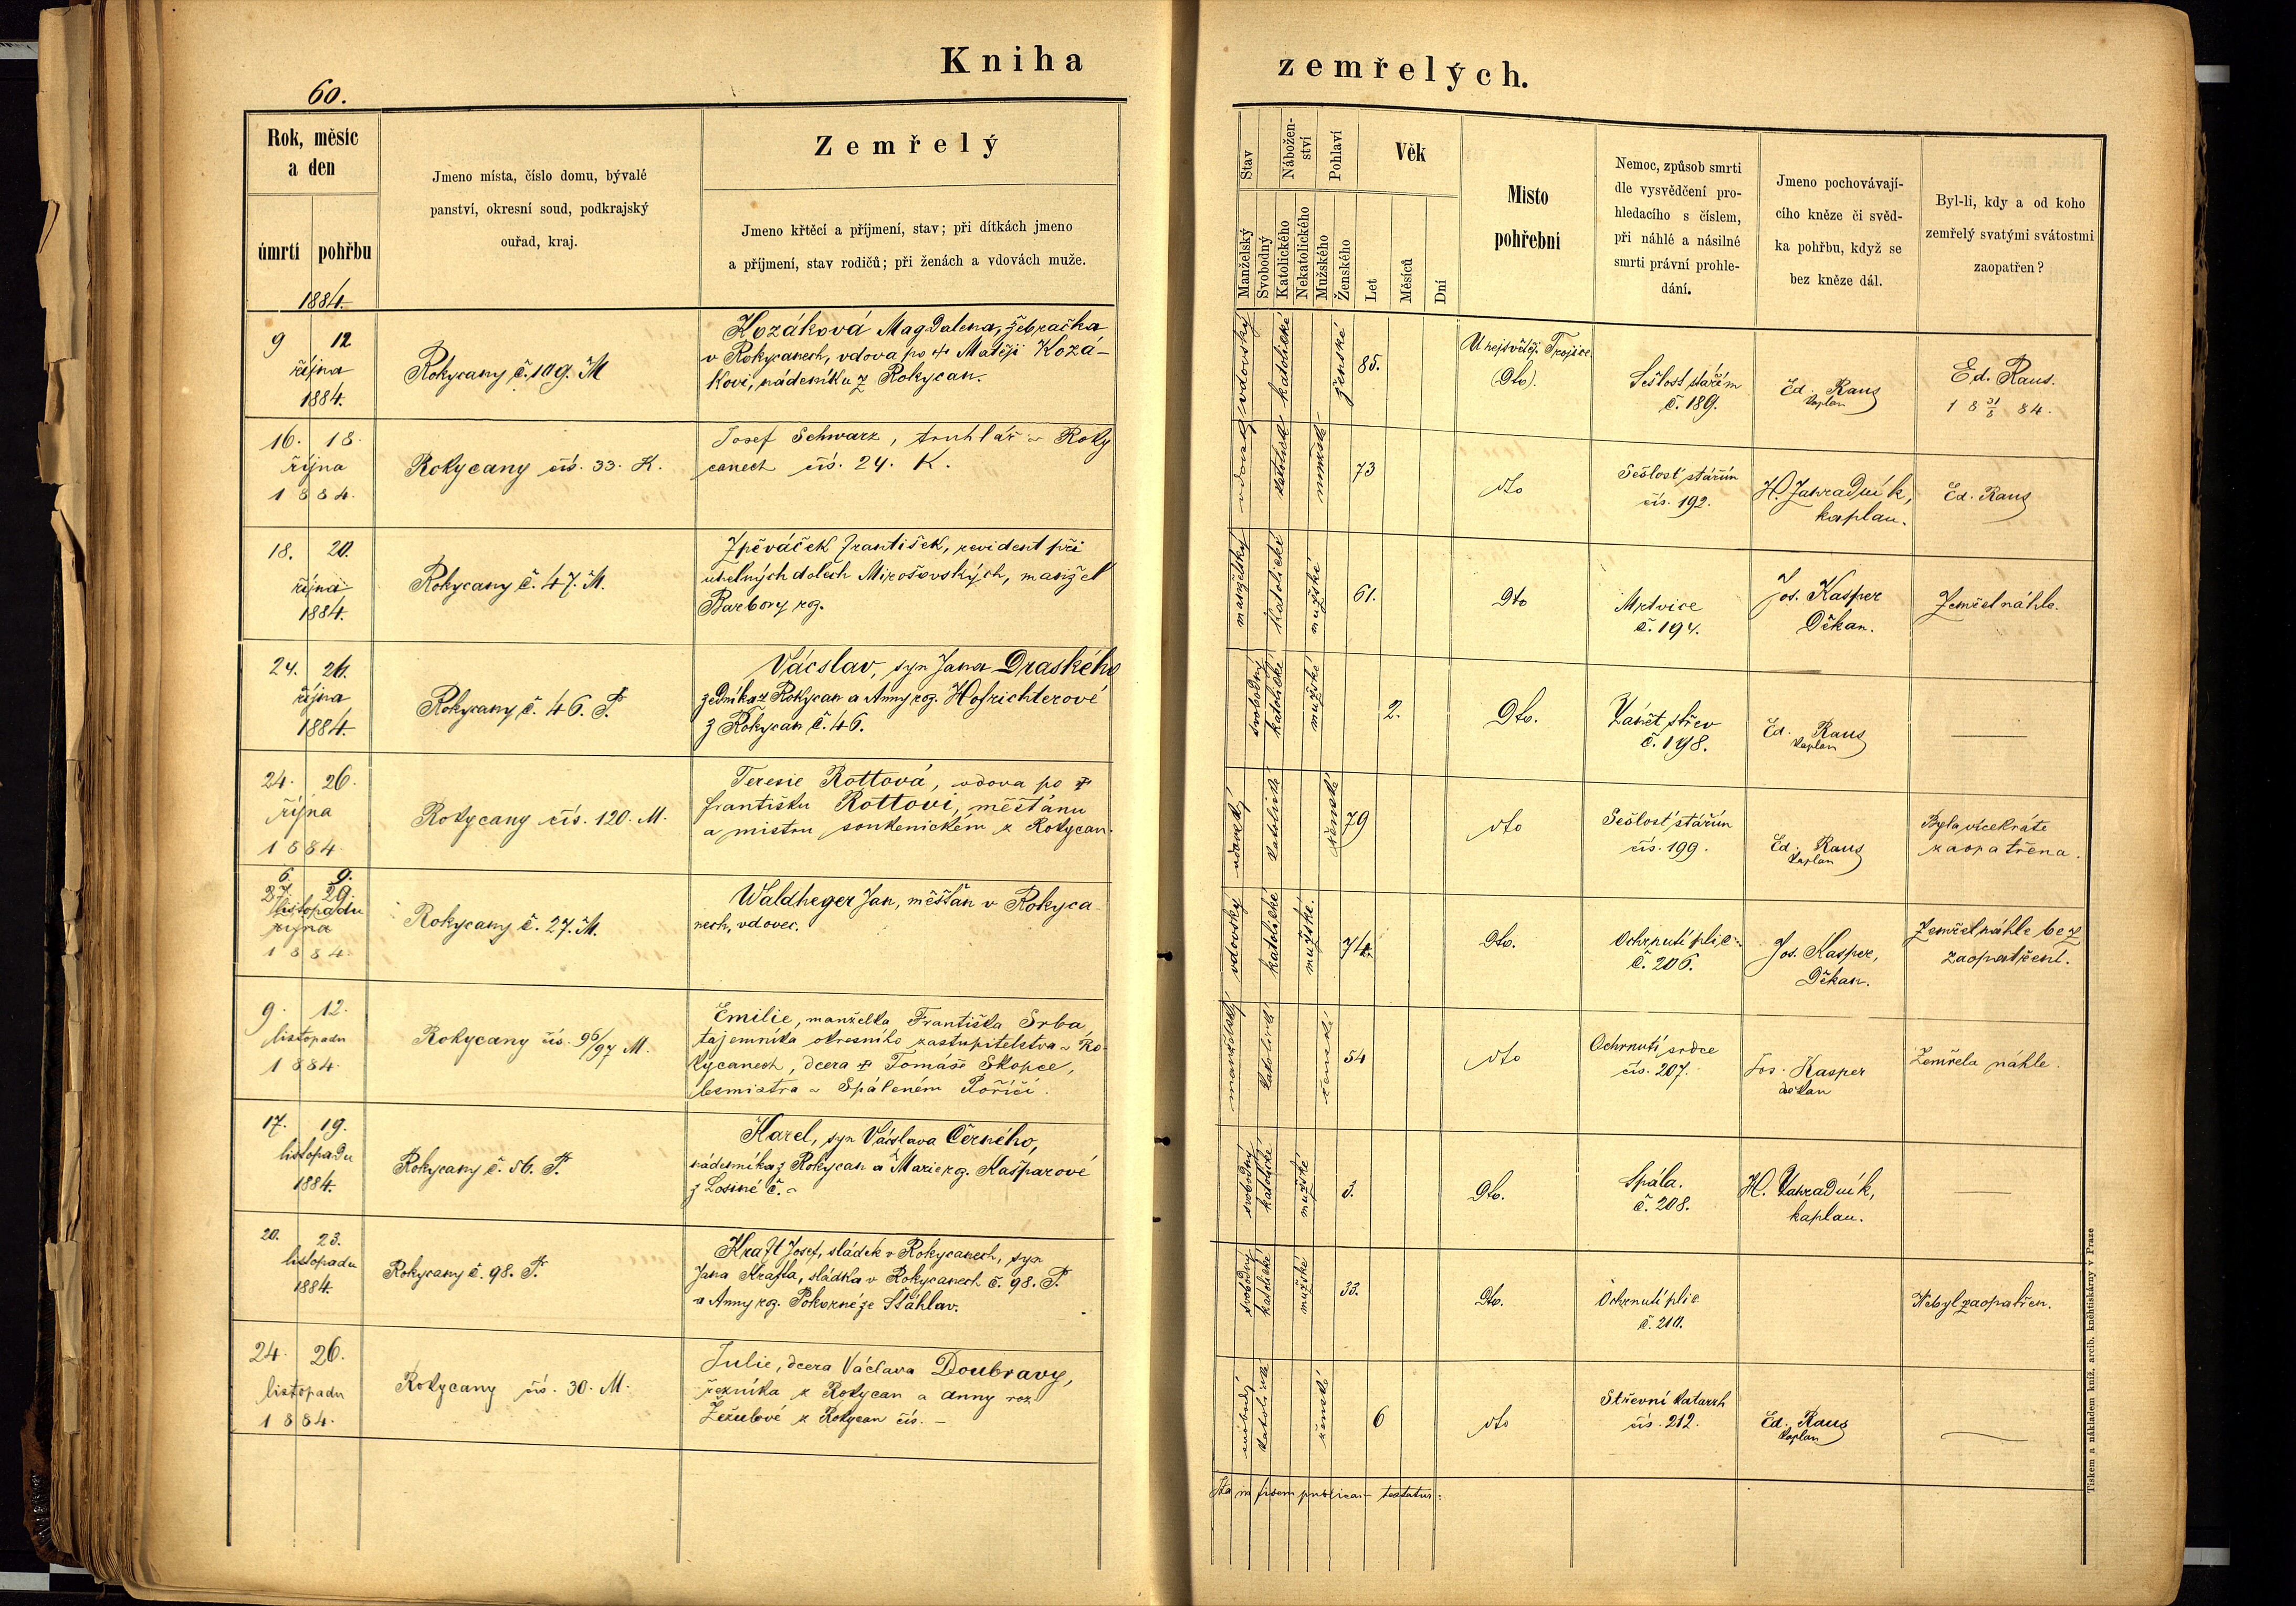 Kniha zemřelých.
60.
Rok, měsíc
a den
úmrtí pohřbu
1884.
Jmeno místa, číslo domu, bývalé
panství, okresní soud, podkrajský
ouřad, kraj.
Zemřelý
Jmeno křtěcí a příjmení, stav; při dítkách jmeno
a příjmení, stav rodičů; při ženách a vdovách muže.
Stav
Manželský
Svobodný
Nábožen-
ství
Katolického
Nekatolického
Pohlaví
Mužského
Ženského
Věk
Let
Měsíců
Dní
Místo
pohřební
Nemoc, způsob smrti
dle vysvědčení pro-
hledacího s číslem,
při náhlé a násilné
smrti právní prohle-
dání.
Jmeno pochovávají-
cího kněze či svěd-
ka pohřbu, když se
bez kněze dál.
Byl-li, kdy a od koho
zemřelý svatými svátostmi
zaopatřen?
9 12
října
1884.
Rokycany č. 109. M
Kozáková Magdalena, žebračka
v Rokycanech, vdova po † Matěji Kozá-
kovi, nádeníku z Rokycan.
vdovský
katolické
ženské
85.
U nejsvětěj. Trojice
(Dto).
Sešlost stářím
č. 189.
Ed. Raus
kaplan
Ed. Raus.
18 31/8 84.
16. 18.
října
1884.
Rokycany čís. 33. K.
Josef Schwarz, truhlář v Roky
canech čís. 24. K.
vdovský
katolické
mužské
73
dto
Sešlost stářím
čís. 192.
H. Zahradník,
kaplan.
Ed. Raus
18. 20.
října
1884.
Rokycany č. 47. M.
Zpěváček František, revident při
uhelných dolech Mirošovských, manžel
Barbory rog.
manželský
katolické
mužské
61.
Dto
Mrtvice
č. 194.
Jos. Kasper
Děkan.
Zemřel náhle.
24. 26.
října
1884.
Rokycany č. 46. P.
Vácslav, syn Jana Draského
zedníka z Rokycan a Anny rog. Hofrichterové
z Rokycan č. 46.
svobodný
katolické
mužské
2.
Dto.
Zánět střev
č. 198.
Ed. Raus
kaplan
24. 26.
října
1884.
Rokycany čís. 120. M.
Teresie Rottová, vdova po †
Františku Rottovi, měšťanu
a mistru soukenickém z Rokycan.
vdovský
katolické
ženské
79
dto
Sešlost stářím
čís. 199.
Ed. Raus
kaplan
Byla vícekráte
zaopatřena.
6. 9.
27. 29.
listopadu
října
1884.
Rokycany č. 27. M.
Waldheger Jan, měšťan v Rokyca-
nech, vdovec.
vdovský
katolické
mužské.
74.
Dto.
Ochrnutí plic
č. 206.
Jos. Kasper,
Děkan.
Zemřel náhle bez
zaopatření.
9. 12.
listopadu
1884.
Rokycany čís. 96/97 M.
Emilie, manželka Františka Srba,
tajemníka okresního zastupitelstva v Ro-
kycanech, dcera † Tomáše Skopce,
lesmistra v Spáleném Poříčí.
manželský
katolické
ženské
54
dto
Ochrnutí srdce
čís. 207.
Jos. Kasper
děkan
Zemřela náhle.
17. 19.
listopadu
1884.
Rokycany č. 56. P.
Karel, syn Václava Černého,
nádeníka z Rokycan a Marie rg. Kašparové
z Losiné č. -
svobodný
katolické
mužské
3.
Dto.
Spála.
č. 208.
H. Zahradník,
kaplan.
20. 23.
listopadu
1884.
Rokycany č. 98. P.
Kraft Josef, sládek v Rokycanech, syn
Jana Krafta, sládka v Rokycanech č. 98. P.
a Anny rg. Pokorné ze Šťáhlav.
svobodný
katolické
mužské
33.
Dto.
Ochrnutí plic
č. 210.
Nebyl zaopatřen.
24. 26.
listopadu
1884.
Rokycany čís. 30. M.
Julie, dcera Václava Doubravy,
řezníka z Rokycan a Anny roz.
Žežulové z Rokycan čís. -
svobodný
katolické
ženské
6
dto
Střevní katarrh
čís. 212.
Ed. Raus
kaplan
Ita in fidem publicam testatur:
Tiskem a nákladem kníž. arcib. kněhtiskárny v Praze